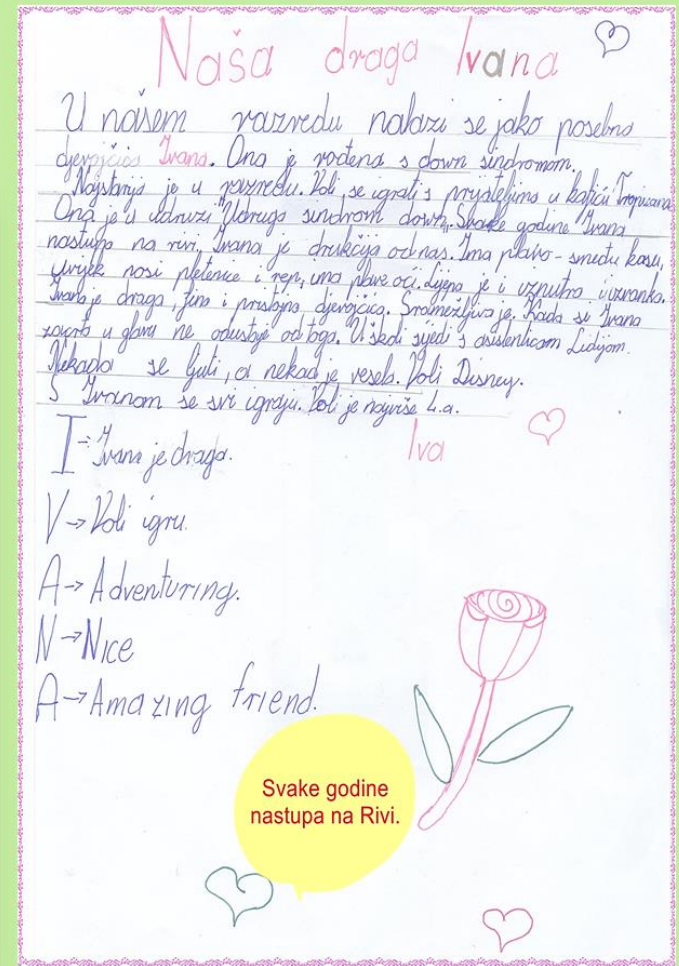 Naša draga Ivana
U našem razredu nalazi se jako posebna
djevojčica Ivana. Ona je rođena s down sindromom.
Najstarija je u razredu. Voli se igrati s prijateljima u kafiću Tropicana.
Ona je u udruzi Udruga sindrom down. Svake godine Ivana
nastupa na rivi. Ivana je drukčija od nas. Ima plavo-smeđu kosu,
uvijek nosi pletenice i rep, ima plave oči. Lijepa je i iznutra i izvanka.
Ivana je draga, fina i pristojna djevojčica. Sramežljiva je. Kada si Ivana
zacrta u glavu ne odustaje od toga. U školi sjedi s asistenticom Lidijom.
Nekada se ljuti, a nekad je vesela. Voli Disney.
S Ivanom se svi igraju. Voli je najviše 4.a.
Iva
I → Ivana je draga.
V → Voli igru.
A → Adventuring.
N → Nice
A → Amazing friend.
Svake godine
nastupa na Rivi.